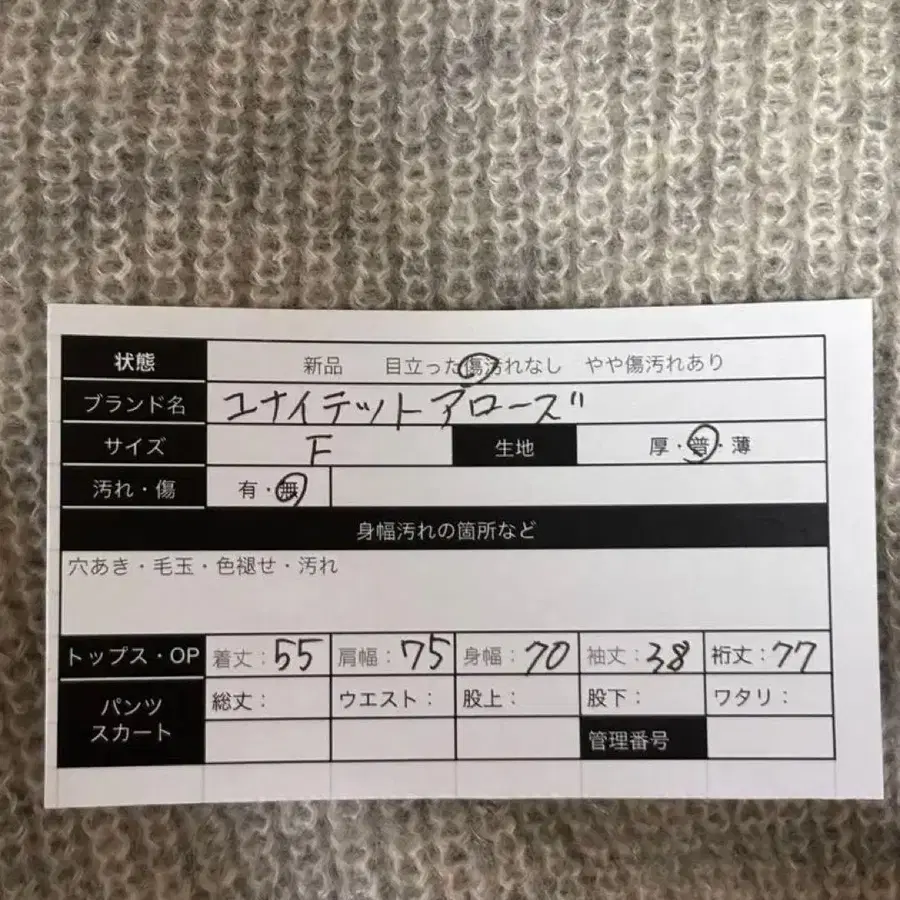 状態 新品 目立った傷汚れなし やや傷汚れあり
ブランド名 ユナイテットアローズ
サイズ F 生地 厚・普・薄
汚れ・傷 有・無
身幅汚れの箇所など
穴あき・毛玉・色褪せ・汚れ
トップス・OP 着丈：55 肩幅：75 身幅：70 袖丈：38 裄丈：77
パンツ スカート 総丈： ウエスト： 股上： 股下： ワタリ：
管理番号